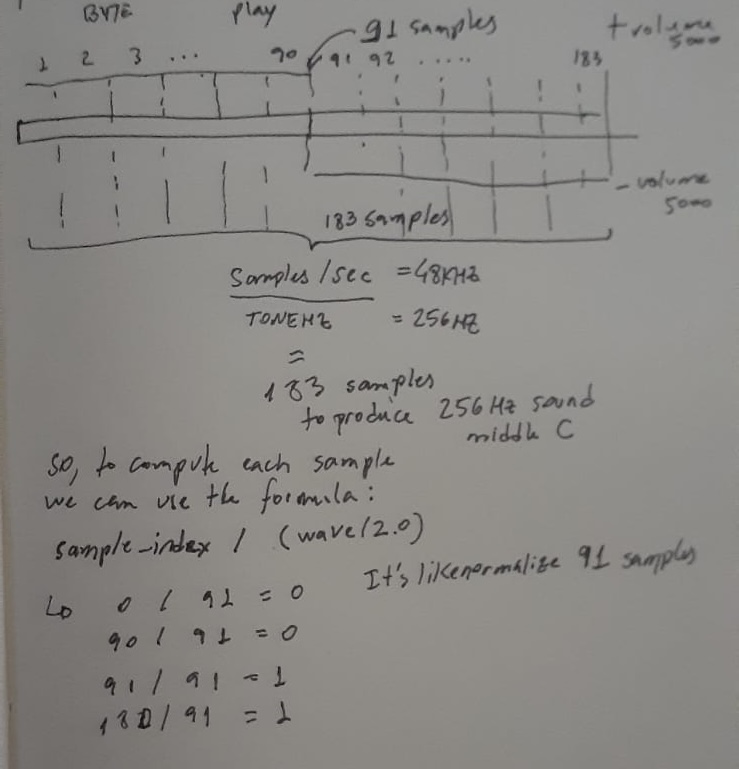 BYTE play
91 samples
+ volume
5000
1 2 3 ... 90 91 92 ..... 183
- volume
5000
183 samples
Samples / sec = 48KHZ
TONEHZ = 256HZ
=
183 samples
to produce 256 Hz sound
middle C
So, to compute each sample
we can use the formula:
sample_index / (wave/2.0)
It's like normalize 91 samples
Lo 0 / 91 = 0
90 / 91 = 0
91 / 91 = 1
/ 91 = 1